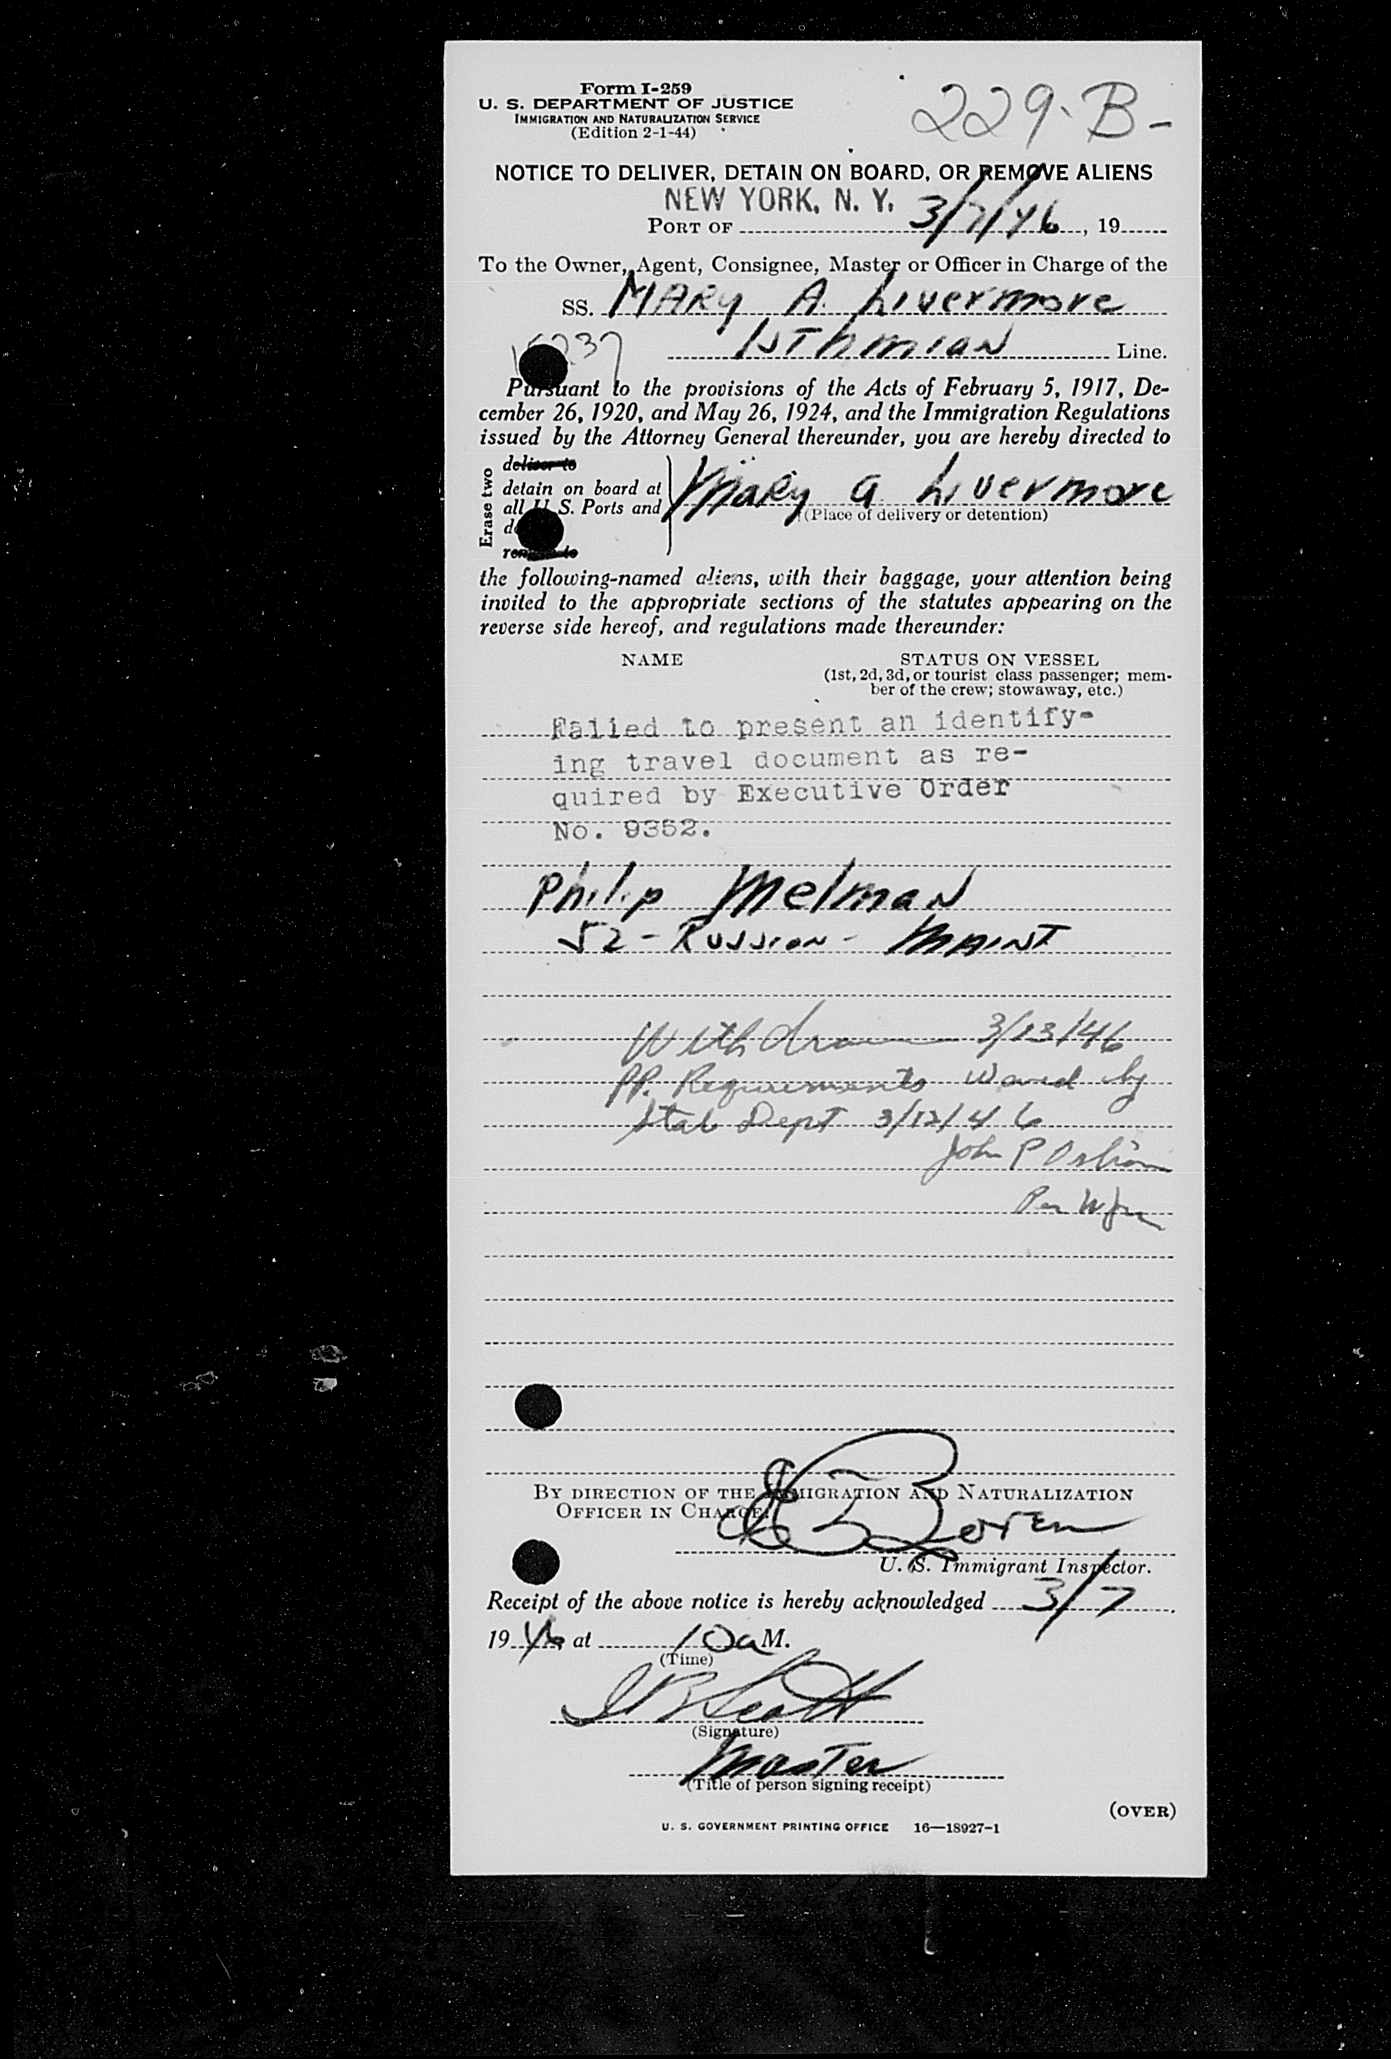 Form I-259
U. S. DEPARTMENT OF JUSTICE
IMMIGRATION AND NATURALIZATION SERVICE
(Edition 2-1-44)
229-B-
NOTICE TO DELIVER, DETAIN ON BOARD, OR REMOVE ALIENS
NEW YORK, N. Y.
PORT OF 3/7/46, 19
To the Owner, Agent, Consignee, Master or Officer in Charge of the
SS. MARY A. Livermore
Isthmian Line.
Pursuant to the provisions of the Acts of February 5, 1917, De-
cember 26, 1920, and May 26, 1924, and the Immigration Regulations
issued by the Attorney General thereunder, you are hereby directed to
Erase two
deliver to
detain on board at
all U. S. Ports and
remove to
Mary A. Livermore
(Place of delivery or detention)
the following-named aliens, with their baggage, your attention being
invited to the appropriate sections of the statutes appearing on the
reverse side hereof, and regulations made thereunder:
NAME
STATUS ON VESSEL
(1st, 2d, 3d, or tourist class passenger; mem-
ber of the crew; stowaway, etc.)
Failed to present an identify-
ing travel document as re-
quired by Executive Order
No. 9352.
Philip Melman
52 - Russian - MAINT
Withdrawn 3/13/46
PP. Requirements Waved by
State Dept 3/12/46
John P
Per
BY DIRECTION OF THE IMMIGRATION AND NATURALIZATION
OFFICER IN CHARGE:
Boren
U. S. Immigrant Inspector.
Receipt of the above notice is hereby acknowledged 3/7
1946 at 10a M.
(Time)
Scott
(Signature)
Master
(Title of person signing receipt)
(OVER)
U. S. GOVERNMENT PRINTING OFFICE 16—18927-1